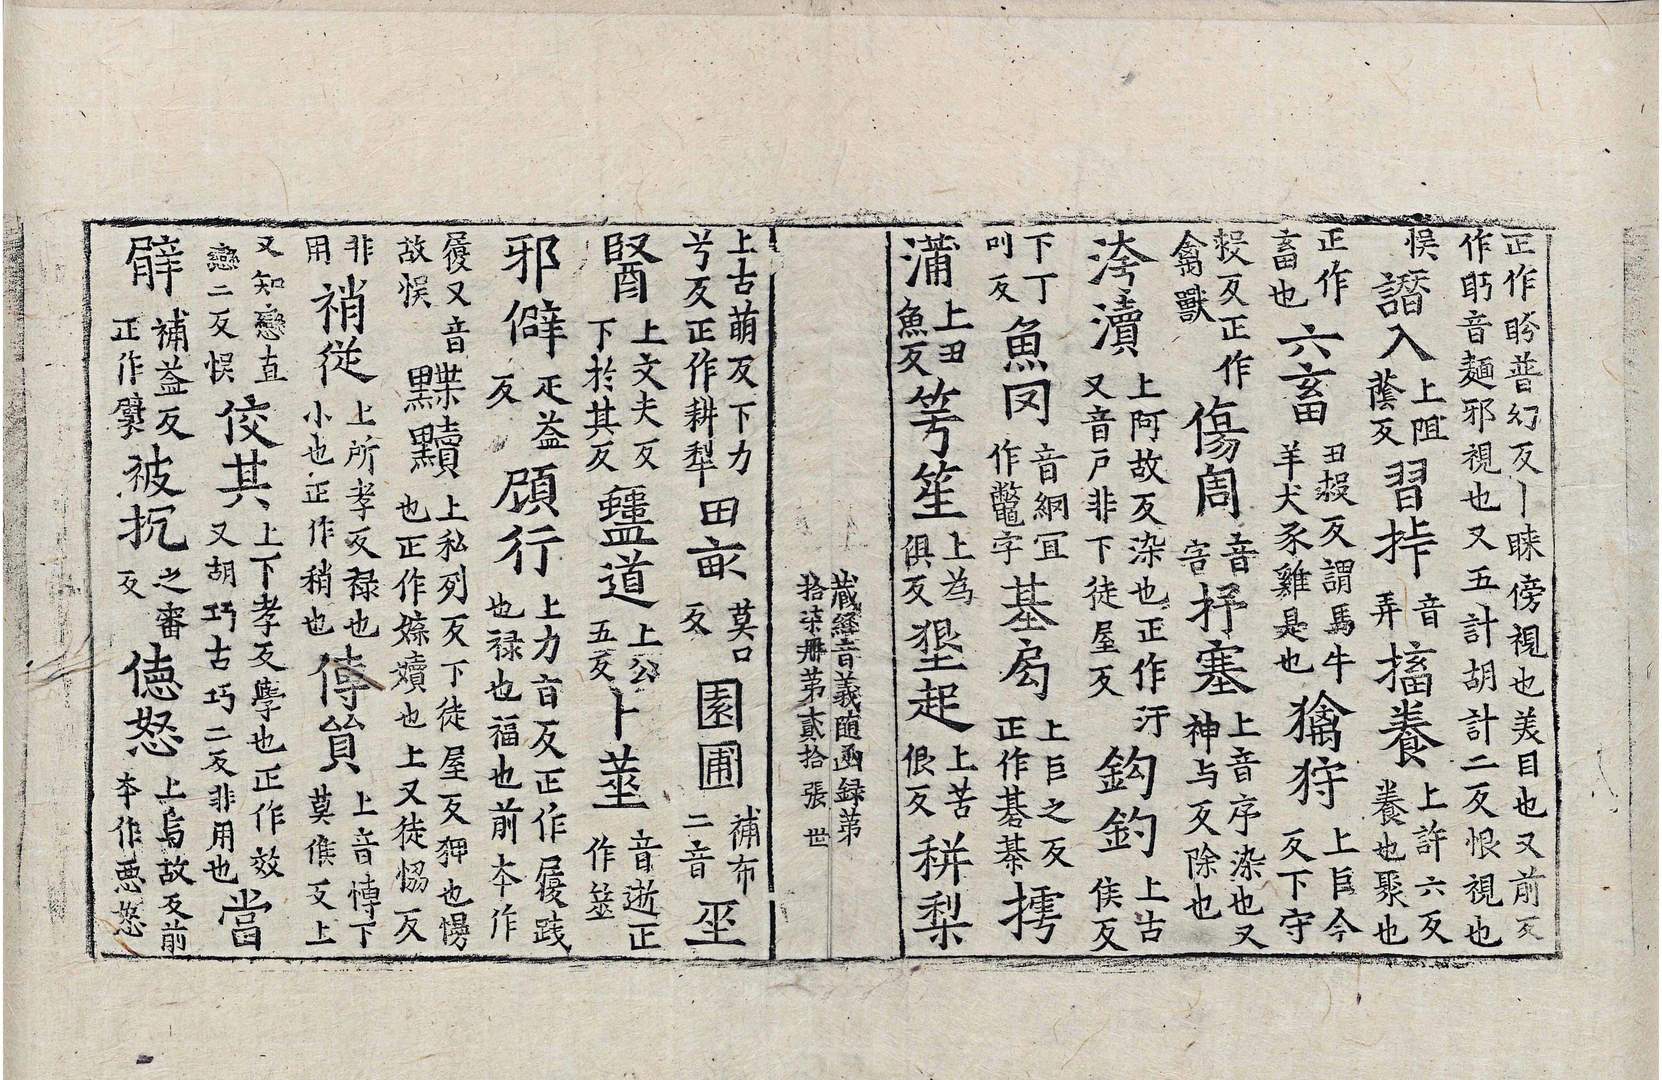 正作盻普幻反丨睞傍視也美目也又前反作眄音麵邪視也又五計胡計二反恨視也
悮譖入上阻蔭反習挵音弄搐養上許六反養也聚也
正作畜也六畜丑救反謂馬牛羊犬豕雞是也擒狩上巨今反下守
救反正作禽獸傷周音害抒塞上音序染也又神与反除也
洿瀆上阿故反染也正作汙又音戶非下徒屋反鉤釣上古侯反
下丁叫反魚罔音網冝作鼈字基局上巨之反正作碁棊摴
蒲上丑魚反竽笙上為俱反墾起上苦佷反耕梨
藏經音義随函録第拾柒冊第貳拾張 世
上古萌反下力兮反正作耕犁田畝莫口反園圃補布二音巫
毉上文夫反下於其反蠱道上公五反卜筮音逝正作筮
邪僻疋益反頋行上力亩反正作履踐也禄也福也前夲作
屨又音故悮媟黷上私列反下徒屋反狎也慢也正作媟嬻也上又徒恊反
非用稍従上所孝反禄也小也正作稍也傳貿上音慱下莫侯反上
又知戀直戀二反悮佼其上下孝反學也正作效又胡巧古巧二反非用也當
擗補益反正作擘被扰之審反㥁怒上烏故反前夲作惡怒